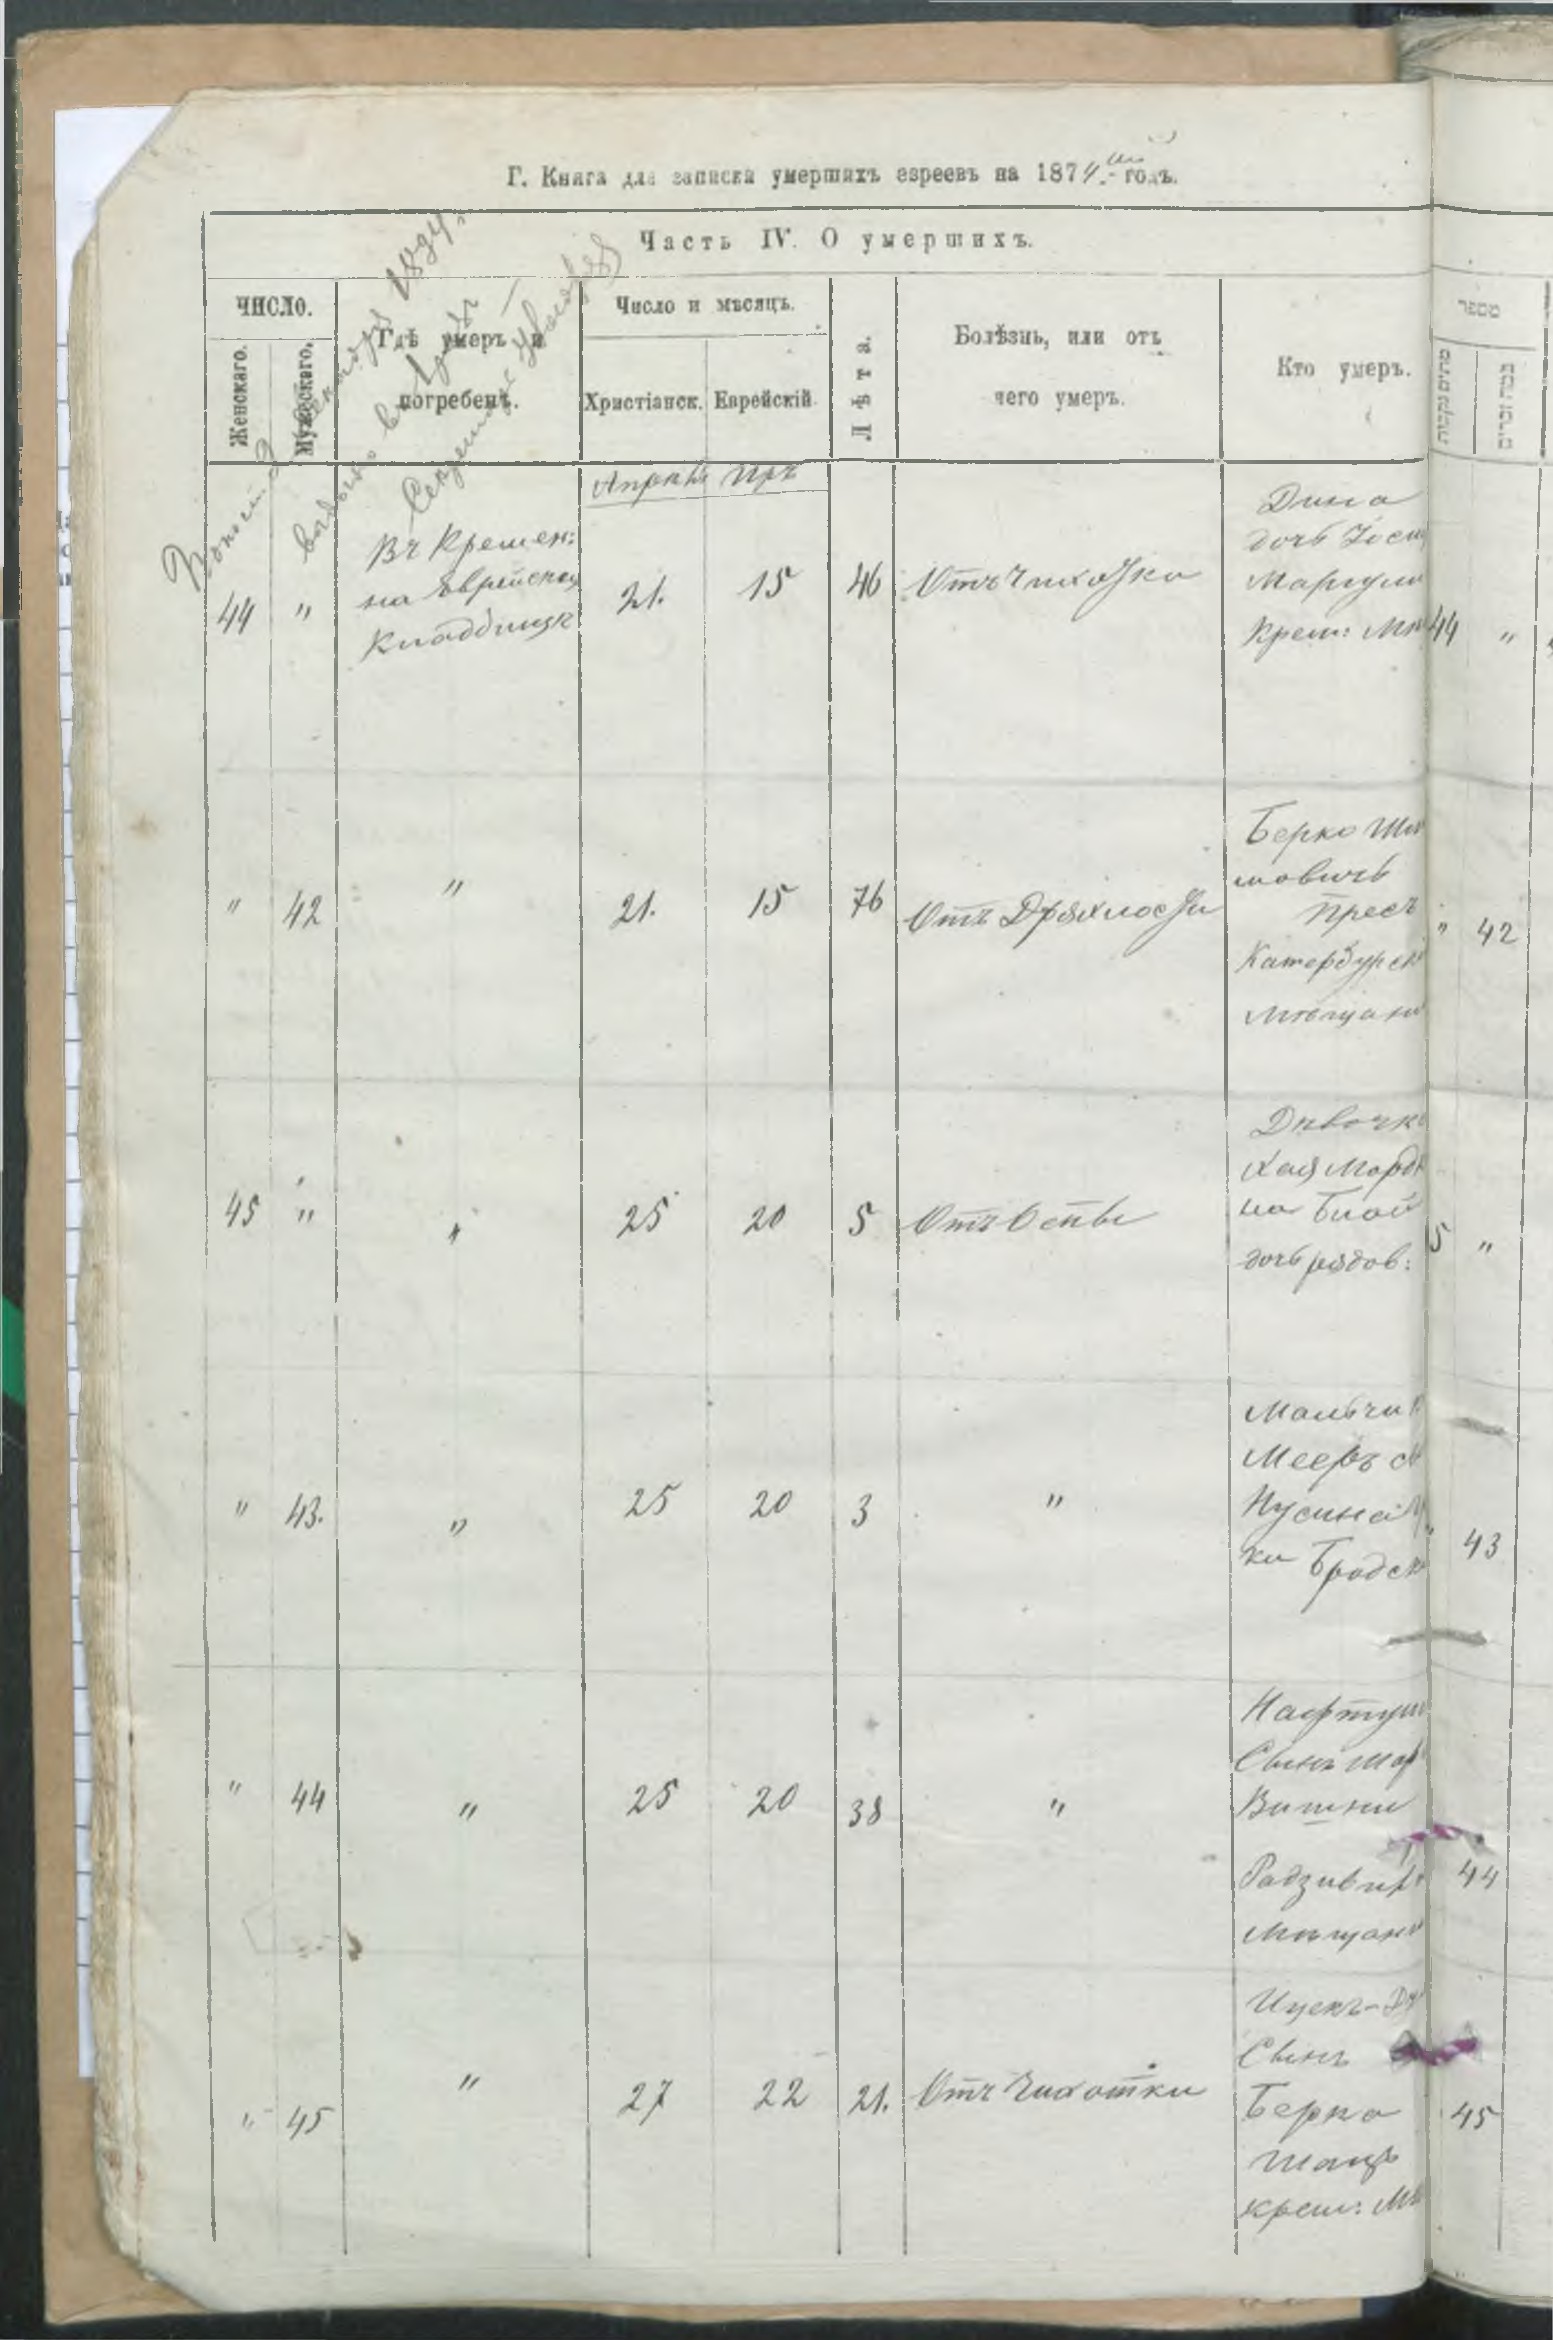 Г. Книга для записки умершихъ евреевъ на 1874.ый годъ.
Часть IV. О умершихъ.
ЧИСЛО.
Женскаго.
Мужескаго.
Гдѣ умеръ и
погребенъ.
Число и мѣсяцъ.
Христіанск.
Еврейскій
Лѣта.
Болѣзнь, или отъ
чего умеръ.
Кто умеръ.
מספר
1874
Секретарь
Апрѣль
Иръ
44 "
Въ Кремен:
на Еврейском
Кладбищѣ
21. 15 46
Отъ Чихотки
Дина
дочь Іось
Маргули
Крем: Мѣ
44 "
" 42 "
21. 15 76
Отъ Дряхлости
Берко Шм
иовичъ
Пресъ
Катербурскі
Мѣщани
" 42
45 " "
25 20 5
Отъ Оспы
Дѣвочк
Хая Мордк
на
дочь рядов:
5 "
" 43. "
25 20 3 "
Мальчик
Мееръ
Нусина
ки Бродск
" 43
" 44 "
25 20 38 "
Нафтули
Сынъ Мор
Вишни
Радзивил
Мѣщани
44
" 45 "
27 22 21.
Отъ Чихотки
Ицекъ-Ду
Сынъ
Берка
Шацъ
Крем: Мѣ
45